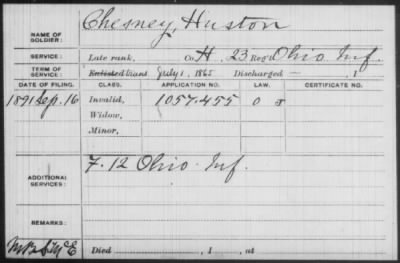 Chesney, Huston
NAME OF
SOLDIER:
SERVICE:
Late rank, Co. H, 23 Reg't Ohio Inf.
TERM OF
SERVICE:
Enlisted July 1, 1865 Discharged — , 1
DATE OF FILING. CLASS. APPLICATION NO. LAW. CERTIFICATE NO.
1891 Sep. 16 Invalid, 1057.455
Widow,
Minor,
F. 12 Ohio Inf.
ADDITIONAL
SERVICES:
REMARKS:
Died , 1 , at